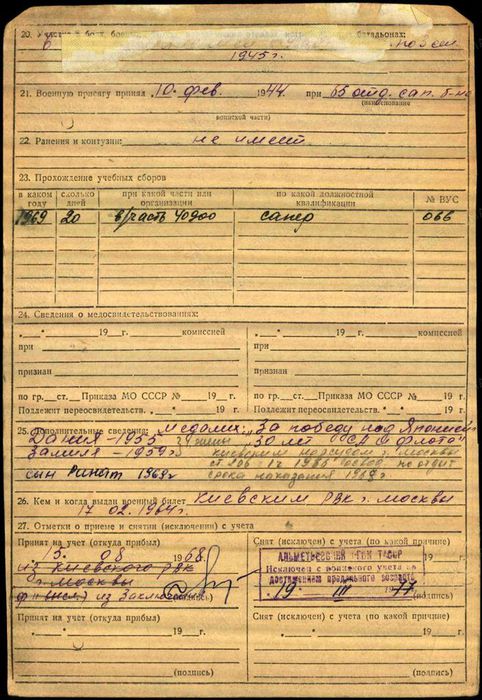 20. Участие в боях, боев батальонах:
1945 г.
21. Военную присягу принял 10. фев. 1944 при 65 отд. сап. б-не
(наименование
воинской части)
22. Ранения и контузии: не имеет
23. Прохождение учебных сборов
в каком году
сколько дней
при какой части или организации
по какой должностной квалификации
№ ВУС
1969 20 в/часть 40900 сапер 066
24. Сведения о медосвидетельствованиях:
"__" 19__г. комиссией
"__" 19__г. комиссией
при
при
признан
признан
по гр.__ст.__Приказа МО СССР №__19__г.
по гр.__ст.__Приказа МО СССР №__19__г.
Подлежит переосвидетельств.
Подлежит переосвидетельств.
25. Дополнительные сведения: Медали: "За победу над Японией"
1955 "30 лет СА и флота"
1959 г. Киевским нарсудом г. Москвы
сын Ринат 1962 г. срока наказания 1968 г.
26. Кем и когда выдан военный билет Киевским РВК г. Москвы
17. 02. 1964 г.
27. Отметки о приеме и снятии (исключении) с учета
Принят на учет (откуда прибыл)
Снят (исключен) с учета (по какой причине)
15. 08 1968 г.
из Киевского РВК
г. Москвы
из Заключения
(подпись)
АЛЬМЕТЬЕВСКИЙ ТАССР
Исключен с воинского учета по
достижении предельного возраста
19. III 1977 г.
Принят на учет (откуда прибыл)
Снят (исключен) с учета (по какой причине)
"__" 19__г.
"__" 19__г.
(подпись)
(подпись)